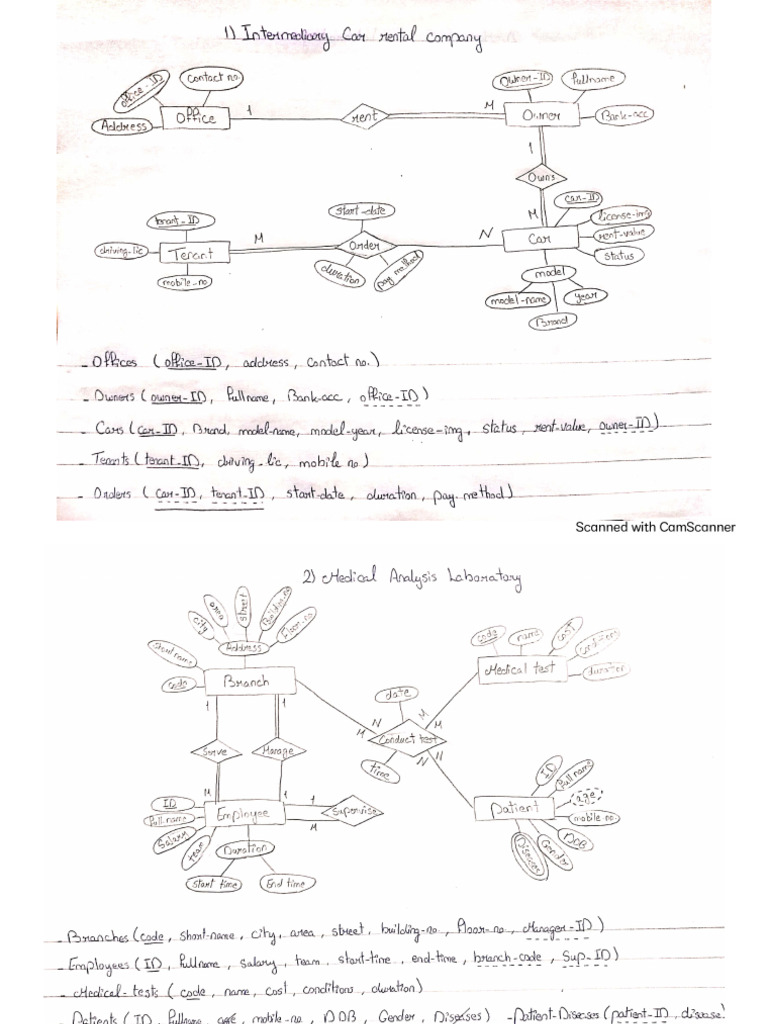 1) Intermediary Car rental company
office-ID
Contact no.
Address
Office
1
rent
M
Owner-ID
Fullname
Owner
Bank-acc
1
Owns
M
car-ID
license-img
rent-value
status
Car
model
model-name
year
Brand
N
start-date
Order
duration
pay method
M
tenant-ID
driving-lic
Tenant
mobile-no
- Offices (office-ID, address, contact no.)
- Owners (owner-ID, Fullname, Bank-acc, office-ID)
- Cars (car-ID, Brand, model-name, model-year, license-img, status, rent-value, owner-ID)
- Tenants (tenant-ID, driving-lic, mobile no)
- Orders (car-ID, tenant-ID, start-date, duration, pay. method)
Scanned with CamScanner
2) Medical Analysis Laboratory
city
area
street
Building-no
Floor-no
Address
short name
code
Branch
code
name
cost
conditions
duration
Medical test
date
N
M
M
M
Conduct test
N
N
time
1
1
Serve
Manage
M
1
ID
Full name
Salary
team
Employee
1
M
Supervise
Duration
Start time
End time
ID
Full name
age
mobile no.
DOB
Gender
Diseases
Patient
- Branches (code, short-name, city, area, street, building-no, Floor-no, Manager-ID)
- Employees (ID, Fullname, salary, team, start-time, end-time, branch-code, Sup-ID)
- Medical-tests (code, name, cost, conditions, duration)
Patients (ID, Fullname, age, mobile-no, DOB, Gender, Diseases) -Patient-Diseases (patient-ID, disease)